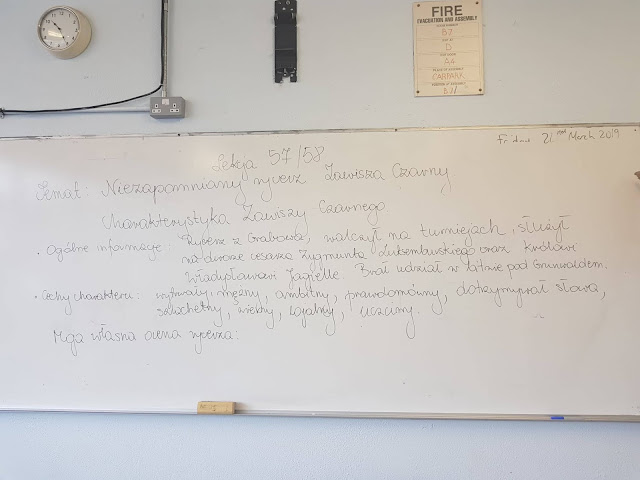 FIRE
EVACUATION AND ASSEMBLY
B7
D
A4
CARPARK
Friday 21 March 2019
Lekcja 57/58
Temat: Niezapomniany rycerz Zawisza Czarny
Charakterystyka Zawiszy Czarnego
• Ogólne informacje: Rycerz z Grabowa, walczył na turniejach, służył
na dworze cesarza Zygmunta Luksemburskiego oraz królowi
Władysławowi Jagielle. Brał udział w bitwie pod Grunwaldem.
• Cechy charakteru: wytrwały, mężny, ambitny, prawdomówny, dotrzymywał słowa,
szlachetny, wierny, lojalny, uczciwy.
Moja własna ocena rycerza: